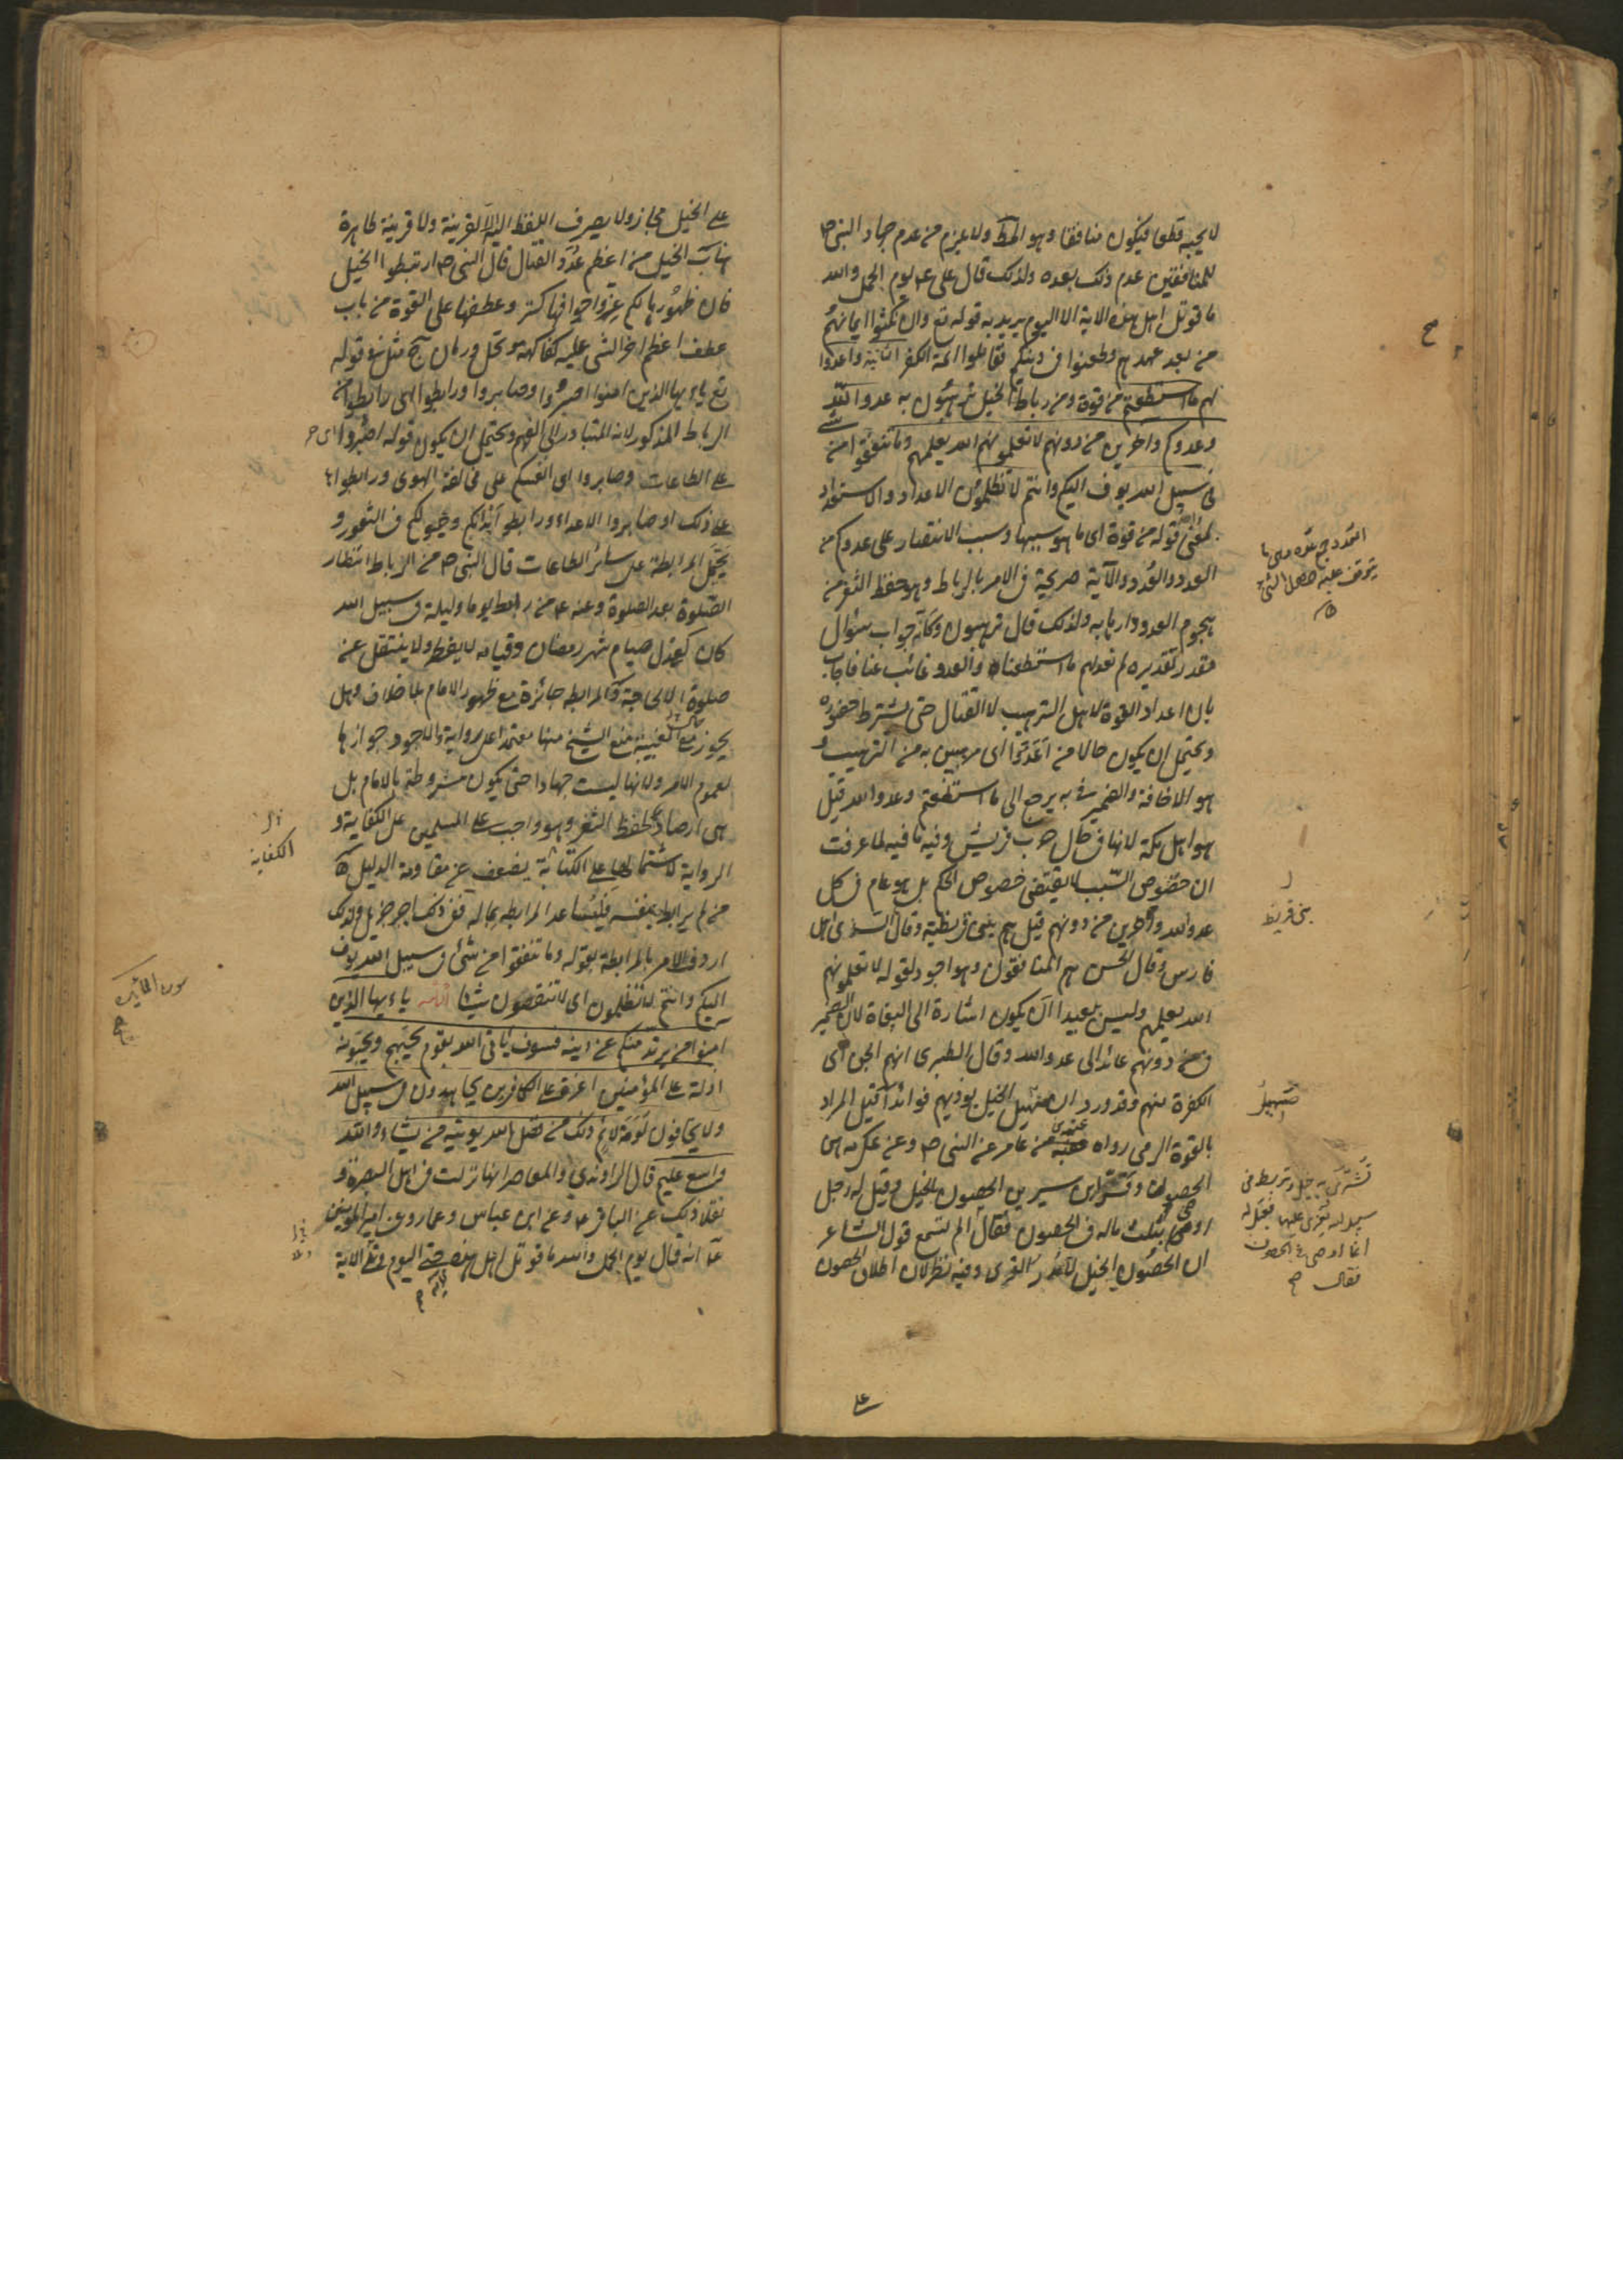 لا يحبه قطعا فيكون منافقا وهو المط ولا يلزم من عدم جهاد النبي ص
للمنافقين عدم ذلك بعده ولذلك قال علي ع يوم الجمل والله
ما قوتل اهل هذه الاية الا اليوم يريد به قوله تع وان نكثوا ايمانهم
من بعد عهدهم وطعنوا في دينكم فقاتلوا ائمة الكفر الثانية واعدوا
لهم ما استطعتم من قوة ومن رباط الخيل ترهبون به عدو الله
وعدوكم واخرين من دونهم لا تعلمونهم الله يعلمهم وما تنفقوا من شئ
في سبيل الله يوف اليكم وانتم لا تظلمون الاعداد والاستعداد
بمعنى قوله من قوة اى ما هو سببها وسبب الانتصار على عدوكم من
العدد والعُدد والآية صريحة في الامر بالرباط وهو حفظ الثغر من
هجوم العدو وارهابه ولذلك قال ترهبون وكانه جواب سؤال
مقدر تقديره لم نعد لهم ما استطعنا والعدو غائب عنا فاجاب
بان اعداد القوة لاجل الترهيب لا القتال حتى يشترط حضوره
ويحتمل ان يكون حالا من اَعِدّوا اى مرهبين به من الترهيب و
هو الاخافة والضمير في به يرجع الى ما استطعتم وعدو الله قيل
هو اهل مكة لانها في حال حرب قريش وفيه ما فيه لما عرفت
ان خصوص السّبب لا يقتضى خصوص الحكم بل هو عام في كل
عدو الله واخرين من دونهم قيل هم بنى قريظة وقال السدى اهل
فارس وقال الحسن هم المنافقون وهو اجود لقوله لا تعلمونهم
الله يعلمهم وليس بعيدا ان يكون اشارة الى البغاة لان الضمير
في من دونهم عائد الى عدو الله وقال الطبرى انهم الجن اى
الكفرة منهم وقد ورد ان صهيل الخيل يؤذيهم فوائد آ قيل المراد
بالقوة الرمى رواه عقبة بن عامر عن النبى ص وعن عكرمه هى
الحصون وفسر ابن سيرين الحصون بالخيل وقيل له رجل
اوصى بثلث ماله في الحصون فقال الم تسمع قول الشاعر
ان الحصون الخيل لا مدر القرى وفيه نظر لان اطلاق الحصون
على
العُدد جمع عدة وهى ما
يتوقف عليه حصول الشئ
بنى قريظة
صَهيل
تشترى به خيل وتربط في
سبيل الله يغزى عليها فقيل له
انما اوصى في الحصون
فقال
على الخيل مجاز ولا يصرف اللفظ اليه الا لقرينة ولا قرينة ظاهرة
هنا ب الخيل من اعظم عُدَد القتال قال النبى ص ارتبطوا الخيل
فان ظهورها لكم عز واجوافها كنز وعطفها على القوة من باب
عطف اعظم اجزا الشى عليه كفاكهة ونخل ورمان ج مثل قوله
تع يا ايها الذين امنوا اصبروا وصابروا ورابطوا اى رابطوا من
الرباط المذكور لانه المتبادر الى الفهم ويحتمل ان يكون قوله اصبروا اى
على الطاعات وصابروا اى انفسكم على مخالفة الهوى ورابطوا
على ذلك او صابروا الاعداء ورابطوا ابدانكم وخيولكم في الثغور و
يحتمل المرابطة على سائر الطاعات قال النبى ص من الرباط انتظار
الصّلوة بعد الصلوة وعنه ع من رابط يوما وليلة في سبيل الله
كان كعدل صيام شهر رمضان وقيامه لا يفطر ولا ينتقل عن
صلوة الا لحاجة د المرابطة جائزة مع ظهور الامام بلا خلاف وهل
يجوز مع الغيبة منع الشيخ منها معتمدا على رواية والاجود جوازها
لعموم الامر ولانها ليست جهادا حتى يكون مشروطة بالامام بل
هى ارصاد لحفظ الثغر وهو واجب على المسلمين على الكفاية و
الرواية لاشتمالها على الكتابة يضعف عن مقاومة الدليل ه
من لم يرابط بنفسه فليساعد المرابطه بماله ففى ذلك اجر جزيل ولذلك
اردف الامر بالمرابطة بقوله وما تنفقوا من شئ في سبيل الله يوف
اليكم وانتم لا تظلمون اى لا تنقصون شيئا الثالثه يا ايها الذين
امنوا من يرتد منكم عن دينه فسوف ياتى الله بقوم يحبهم ويحبونه
اذلة على المؤمنين اعزة على الكافرين يجاهدون في سبيل الله
ولا يخافون لومة لائم ذلك من فضل الله يؤتيه من يشاء والله
واسع عليم قال الراوندي والمعاصر انها نزلت في اهل البصرة و
نقلا ذلك عن الباقر ع وعن ابن عباس وعمار وعن امير المومنين
ع انه قال يوم الجمل والله ما قوتل اهل هذه حتى اليوم وتلا الآية
الكفاية
سورة المائدة